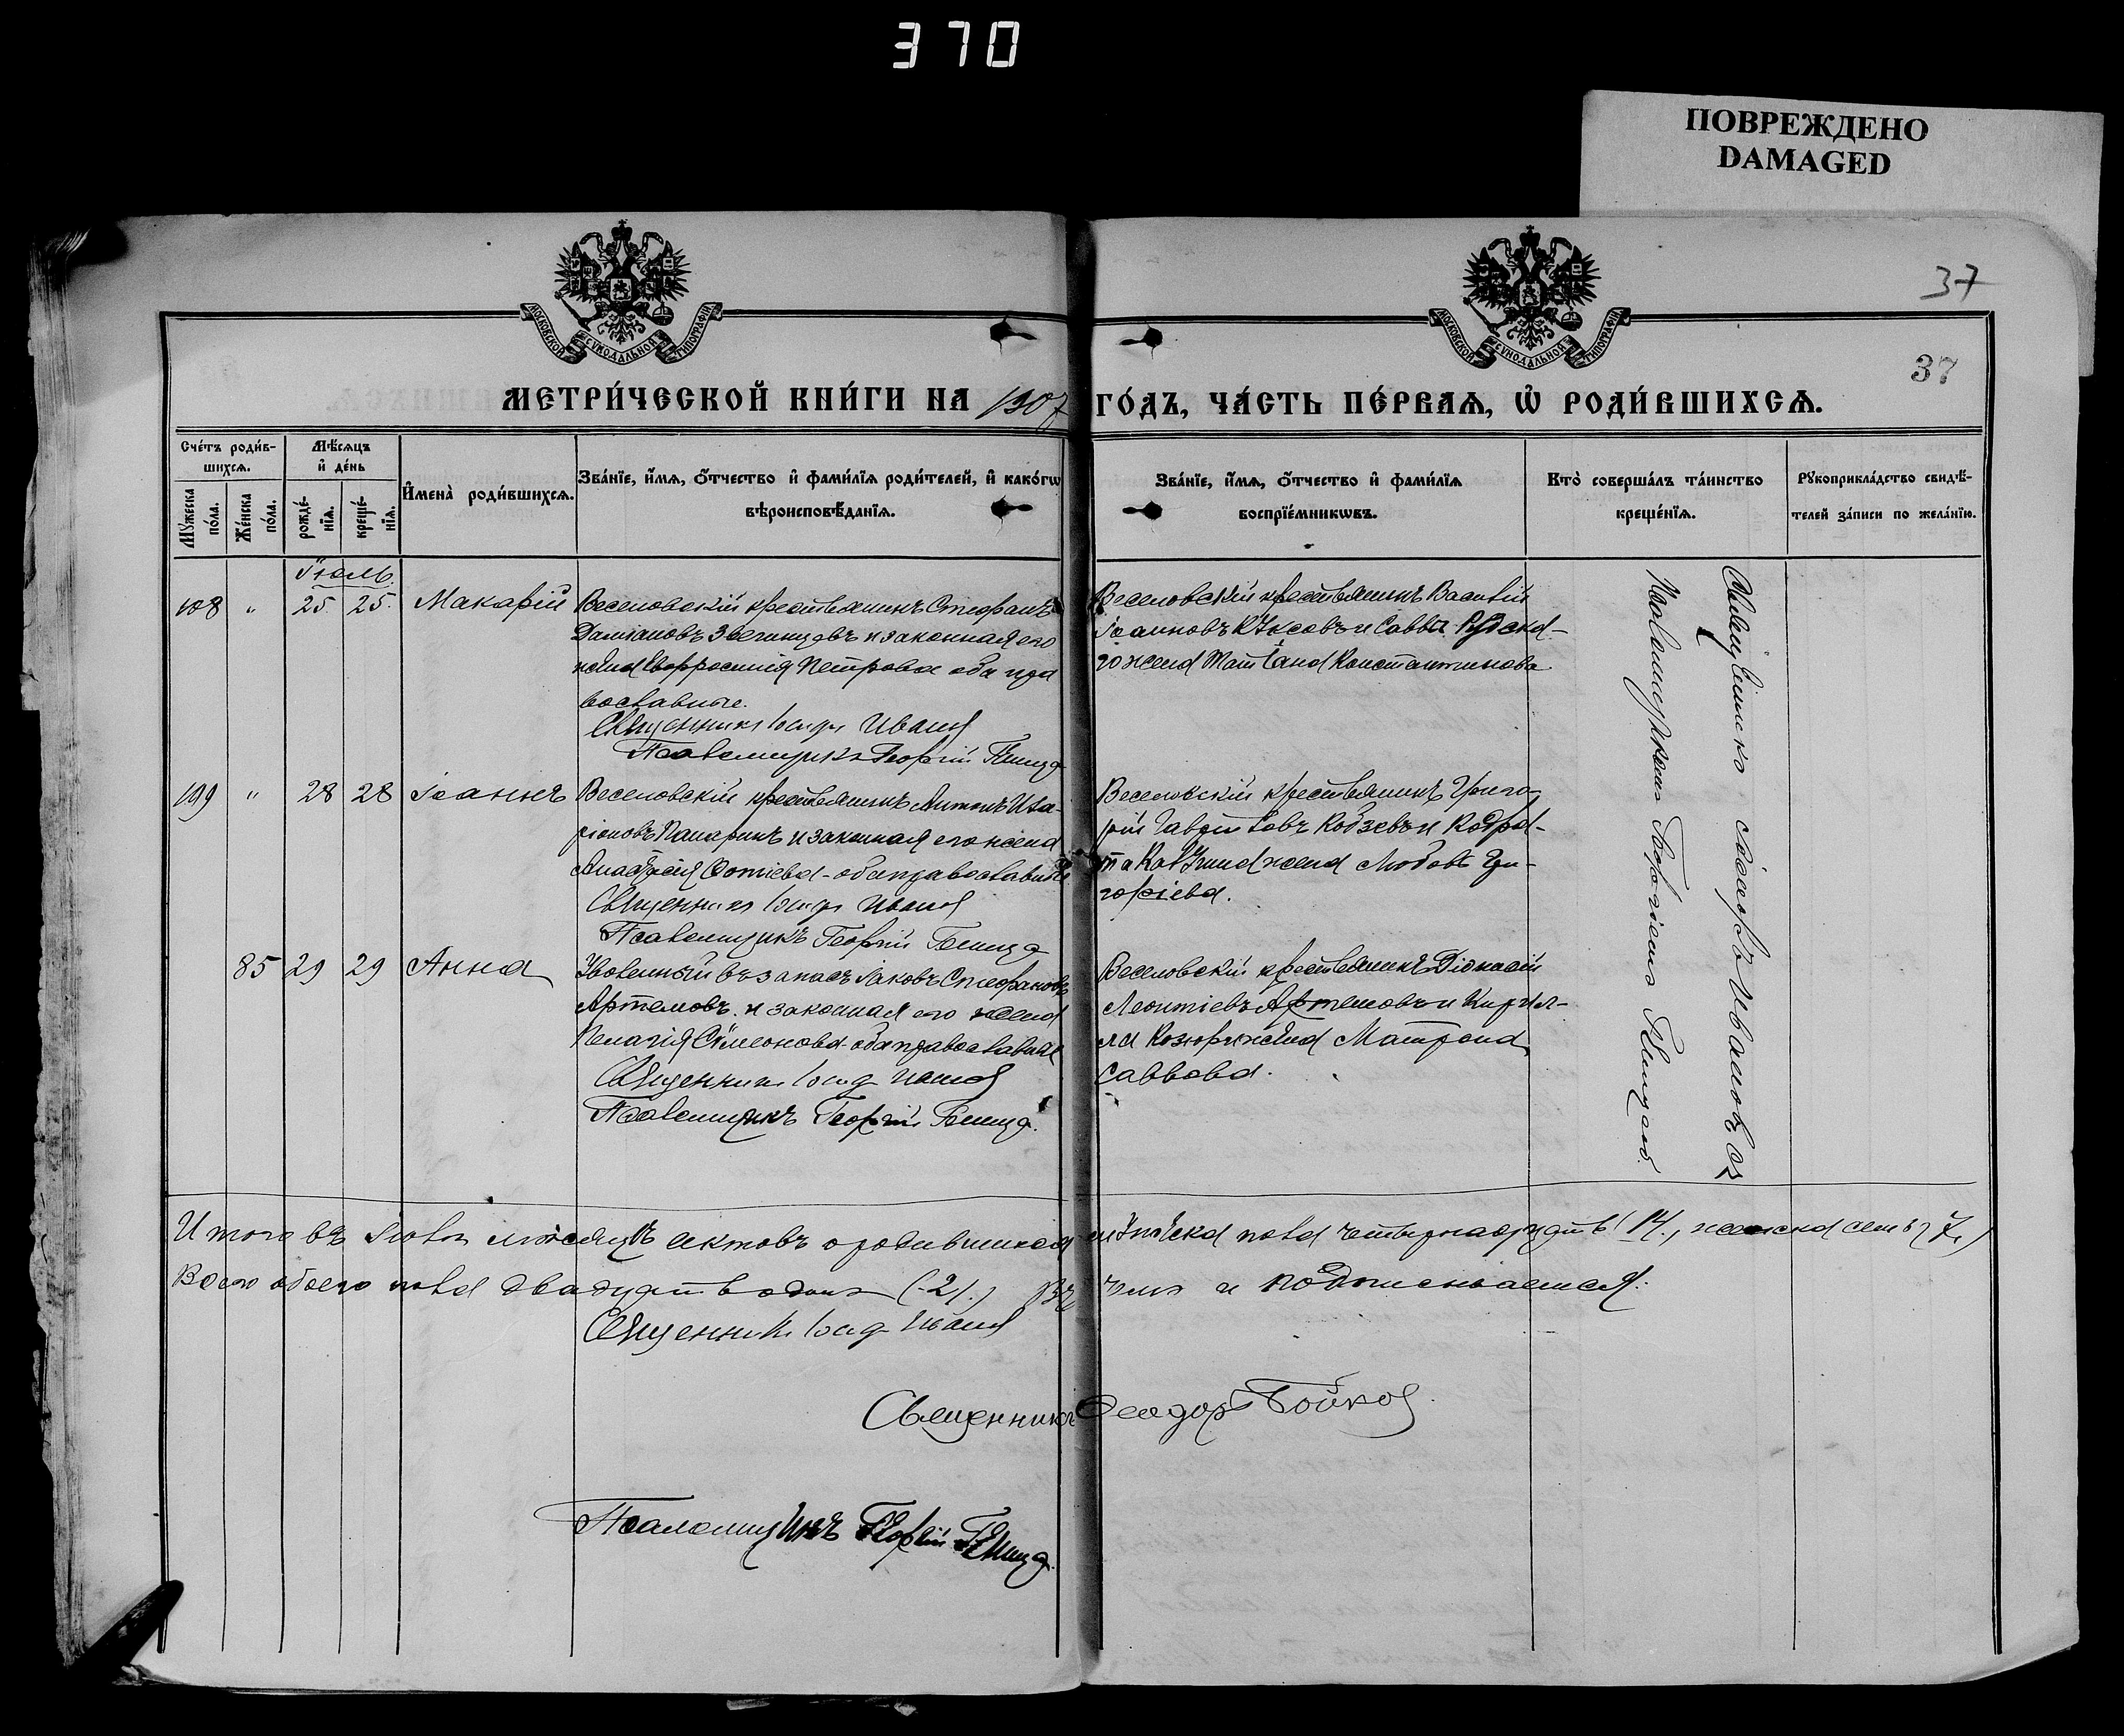 370
ПОВРЕЖДЕНО
DAMAGED
37
37
МОСКОВСКОЙ СѴНОДАЛЬНОЙ ТИПОГРАФІИ
МОСКОВСКОЙ СѴНОДАЛЬНОЙ ТИПОГРАФІИ
МЕТРИ́ЧЕСКОЙ КНИ́ГИ НА 1907 ГО́ДЪ, ЧА́СТЬ ПЕ́РВАѦ, Ѡ РОДИ́ВШИХСѦ.
Сче́тъ роди́в-
шихсѧ.
Мꙋ́жеска по́ла.
Же́нска по́ла.
Мѣ́сѧцъ
и҆ де́нь
рожде́-
нїѧ.
креще́-
нїѧ.
И҆мена̀ роди́вшихсѧ.
Зва́нїе, и҆́мѧ, ѻ҆́тчество и҆ фами́лїѧ роди́телей, и҆ како́гѡ
вѣроисповѣ́данїѧ.
Зва́нїе, и҆́мѧ, ѻ҆́тчество и҆ фами́лїѧ
воспрїе́мникѡвъ.
Кто̀ соверша́лъ та́инство
креще́нїѧ.
Рꙋкоприкла́дство свидѣ́-
телей за́писи по жела́нїю.
Іюль.
108 " 25. 25. Макарій
Веселовскій крестьянинъ Стефанъ
Даміановъ Звегинцовъ и законная его
жена Евфросинія Петрова оба пра
вославные.
Священникъ Іоаснъ Иванов
Псаломщикъ Георгій
Веселовскій крестьянинъ Василій
Іоанновъ и Саввы
го жена Татіана Константинова
109 " 28 28 Іоаннъ
Веселовскій крестьянинъ Антонъ Ила-
ріоновъ и законная его жена
Фотіева - оба православные
Священникъ Иванов
Псаломщикъ Георгій
Веселовскій крестьянинъ Григо
рій Гавриловъ Кобзевъ и Кодра-
та жена Любовь Гри-
горіева.
85 29 29 Анна
Уволенный въ запасъ Іаковъ Стефановъ
Артемовъ. и законная его жена
Пелагія Симеонова - оба православные
Священникъ Иванов
Псаломщикъ Георгій
Веселовскій крестьянинъ Діонисій
Леонтіевъ Артемовъ и Кирил-
ла жена Матрона
Саввова.
Священникъ Ивановъ съ
Псаломщикомъ Георгіемъ
Итого въ Іюль мѣсяцѣ актовъ о родившихся мужеска пола четырнадцать (14., женска семь (7.)
Всего обоего пола двадцать одинъ (21.) Въ чемъ и подписываемся:
Священникъ Иванов
Священникъ Феодоръ Бойков
Псаломщикъ Георгій